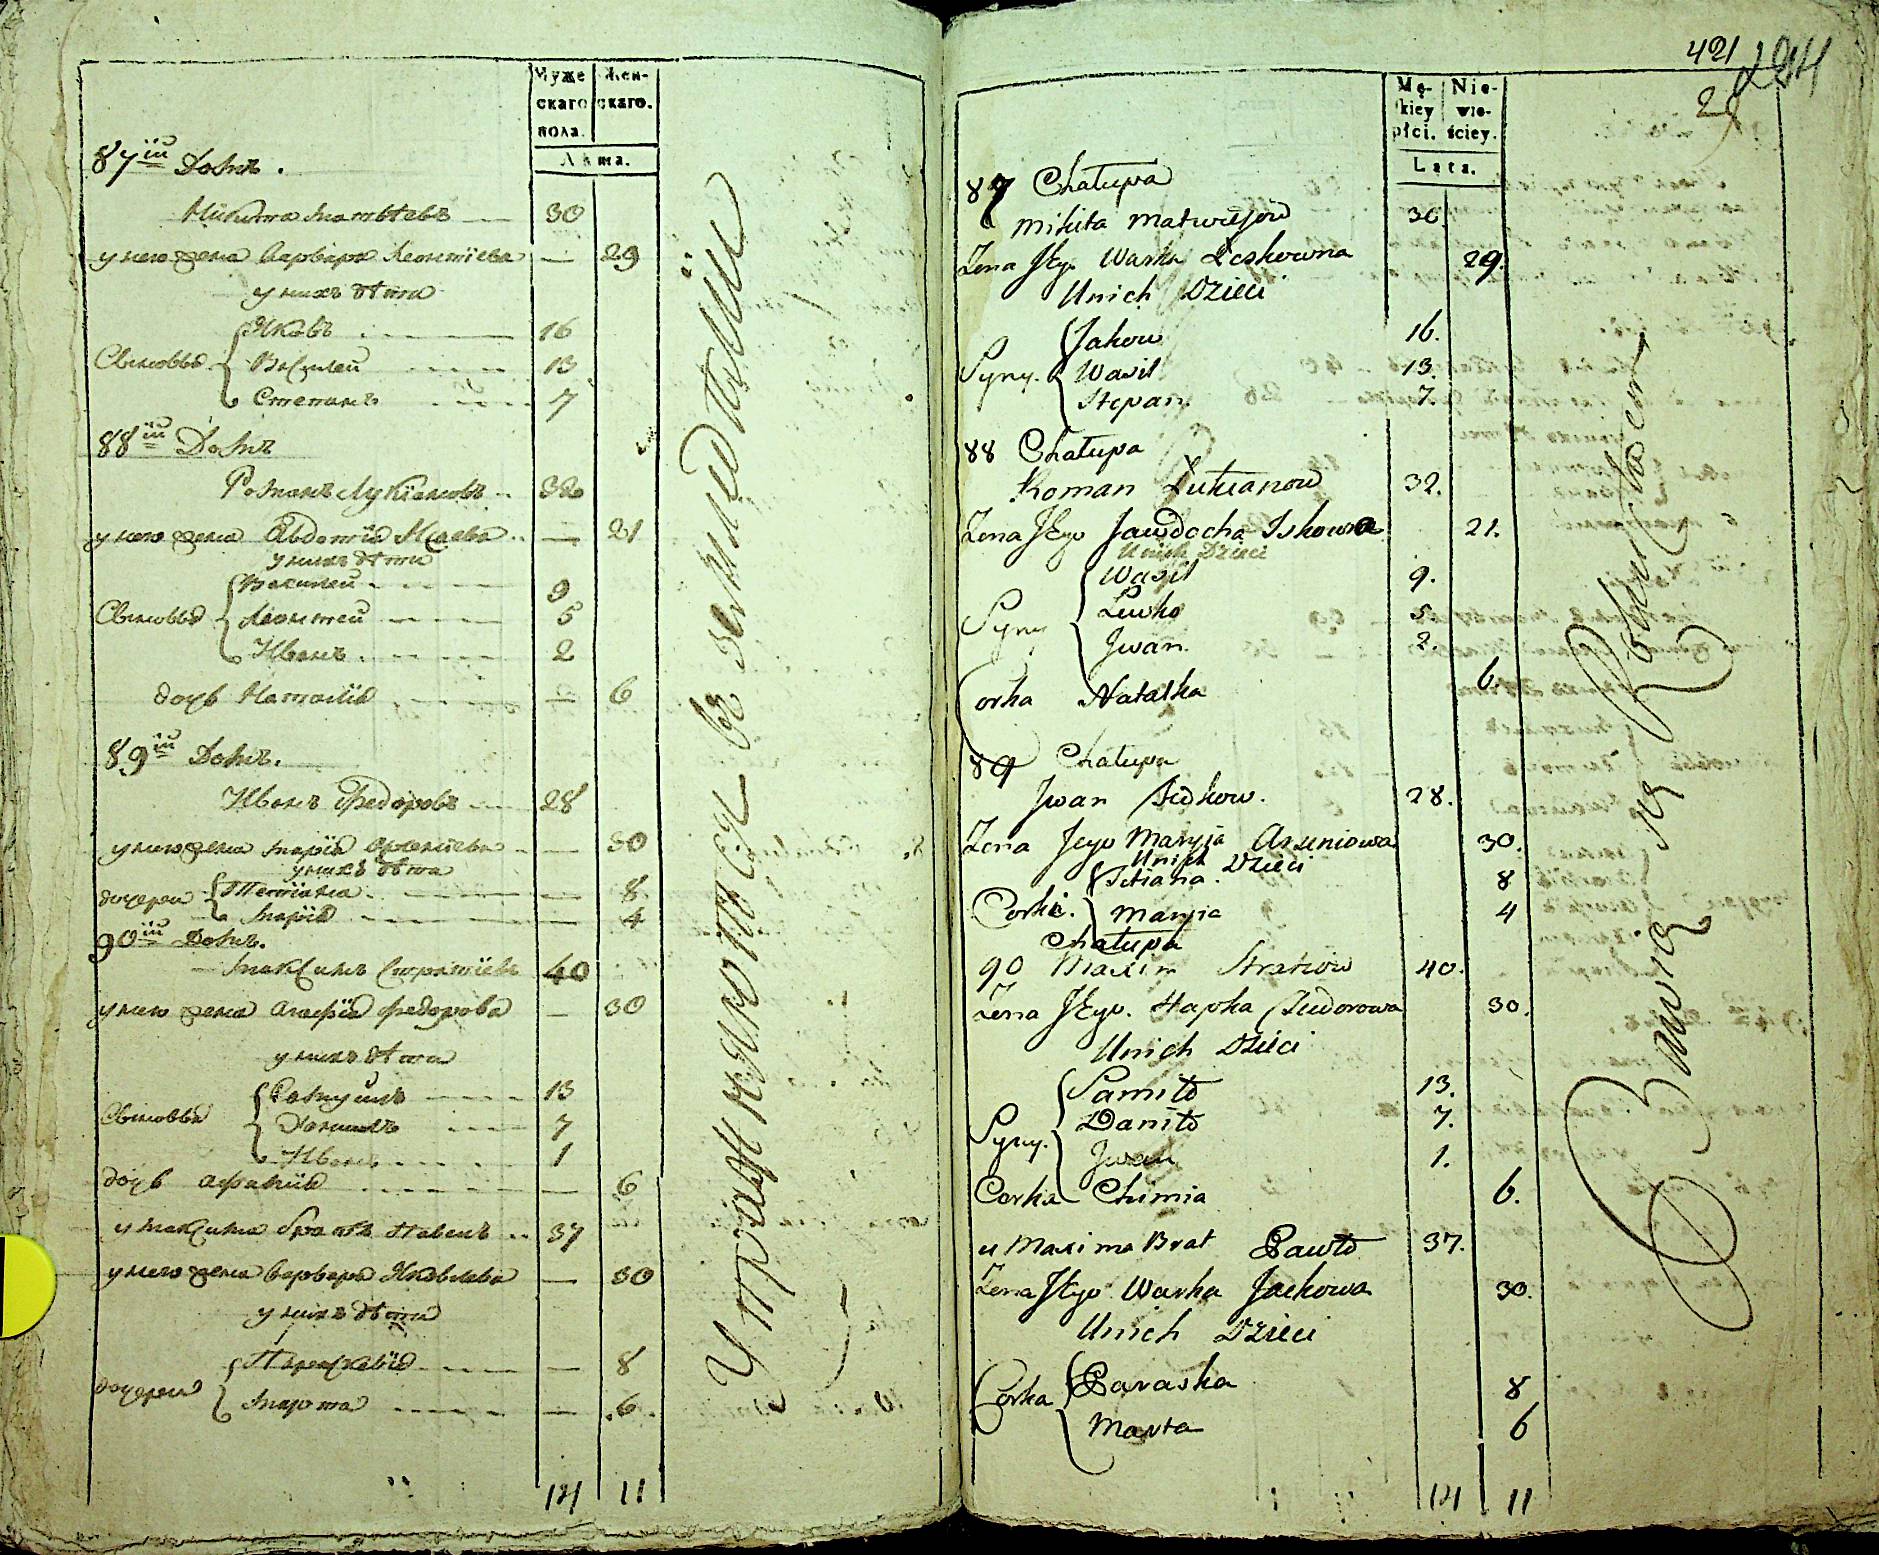 Муже
скаго
пола.
Жен-
скаго.
Лѣта.
87ій Домъ.
Никита Матвѣевъ 30
у него жена Варвара Леонтіева — 29
у нихъ дѣти
Сыновья
Яковъ 16
Василей 13
Степанъ 7
88ій Домъ
Романъ Лукіановъ 32
у него жена Авдотія Исаева — 21
у нихъ дѣти
Сыновья
Василей 9
Леонтей 5
Иванъ 2
дочь Наталія — 6
89ій Домъ.
Иванъ Федоровъ 28
у него жена Марія Арсеніева — 30
у нихъ дѣти
дочери
Тетіана — 8
Марія — 4
90ій Домъ.
Максимъ Стратіевъ 40
у него жена Агафія Федорова — 30
у нихъ дѣти
Сыновья
13
Данило 7
Иванъ 1
дочь — 6
у Максима братъ Павелъ 37
у него жена Варвара Яковлева — 30
у нихъ дѣти
дочери
Параскевія — 8
Марта — 6
14 11
Упражняются въ земледѣліи
421
Mę-
skiey
płci.
Nie-
wie-
ściey.
Lata.
87 Chałupa
Mikita Matwiejow 30
Zona Jego Warka Leskowna 29.
Unich Dzieci
Syny.
Jakow 16.
Wasil 13.
Stepan 7.
88 Chałupa
Roman Lukianow 32.
Zona Jego Jawdocha Iskowa 21.
Unich Dzieci
Syny
Wasil 9.
Lewko 5.
Jwan 2.
Corka Natalka 6.
89 Chałupa
Jwan Fedkow. 28.
Zona Jego Maryja Arseniowa 30.
Unich Dzieci
Corki.
Tetiana. 8
Maryia 4
Chałupa
90 Maxim Stratiow 40.
Zona Jego. Hapka Fiedorowa 30.
Unich Dzieci
Syny.
Samiło 13.
Daniło 7.
Jwan 1.
Corka Chimia 6.
u Maxima Brat Pawło 37.
Zona Jego Warka Jackowa 30.
Unich Dzieci
Corka
Paraska 8
Marta 6
14 11